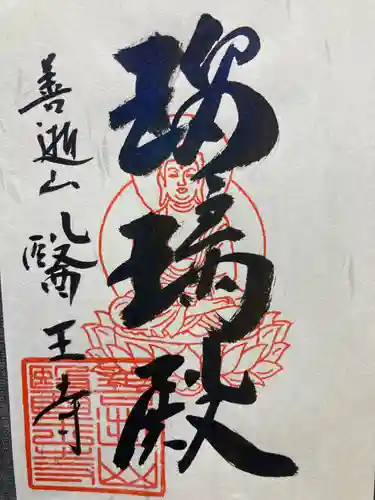 瑠璃殿
善逝山 醫王寺